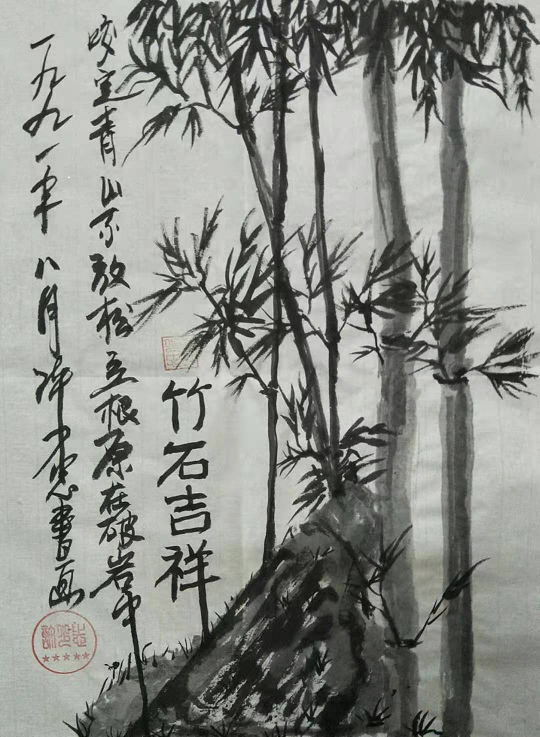 竹石吉祥
咬定青山不放松立根原在破岩中
一九九一年八月书画